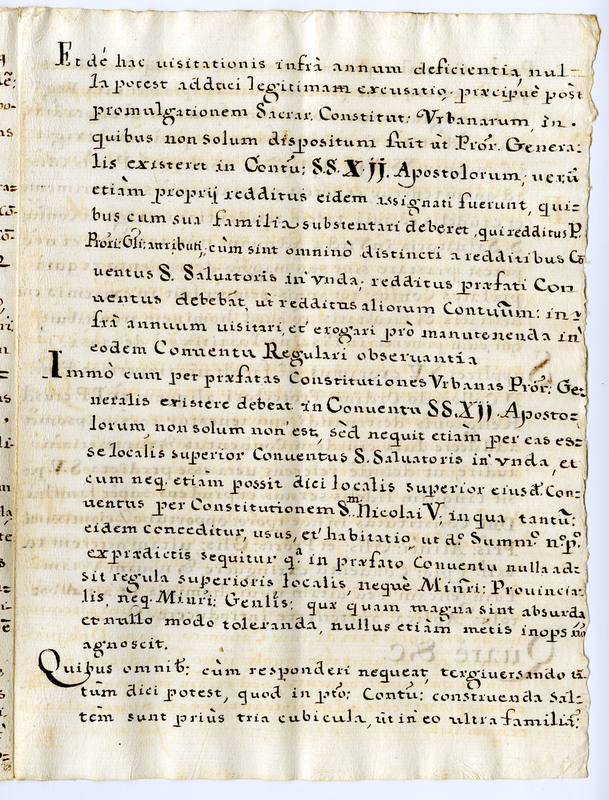 Et dé hac uisitationis infrà annum deficientia, nul-
la potest adduci legitimam excusatio, præcipuè post
promulgationem Sacrar. Constitut: Vrbanarum, in
quibus non solum dispositum fuit ut Pror. Genera:
lis existeret in Contu; S.S. X.JJ. Apostolorum; uerũ
etiàm proprij redditus eidem assignati fuerunt, qui:
bus cum sua familia substentari deberet, qui redditus P.
Prori: Gli: attributi, cùm sint omninò distincti a redditibus Cõ
uentus S. Saluatoris in unda; redditus præfati Con
uentus debebãt, ut redditus aliorum Contuum: in
frà annuum uisitari, et erogari prò manutenenda in
eodem Conuentu Regulari obseruantia
Immò cum per præfatas Constitutiones Vrbanas Pror: Ge:
neralis existere debeat in Conuentu SS. XJJ. Aposto:
lorum, non solum non est, sèd nequit etiàm per eas es:
se localis superior Conuentus S. Saluatoris in unda, et
cum neq. etiàm possit dici localis superior eiusd. Con:
uentus per Constitutionem Sm. Nicolai V; in qua, tantũ:
eidem conceditur, usus, et habitatio, ut do. Summo. no. po.
ex prædictis sequitur qa. in præfato Conuentu nulla ad:
sit regula superioris localis, nequè Minri: Prouincia:
lis, neq. Minri: Genlis: quæ quam magna sint absurda
et nullo modo toleranda, nullus etiàm mẽtis inops nõ
agnoscit.
Quibus omnib: cùm responderi nequeat, tergiuersando tã
tùm dici potest, quod in pto: Contu: construenda sal:
tèm sunt priùs tria cubicula, ùt in eo ultra familiã: